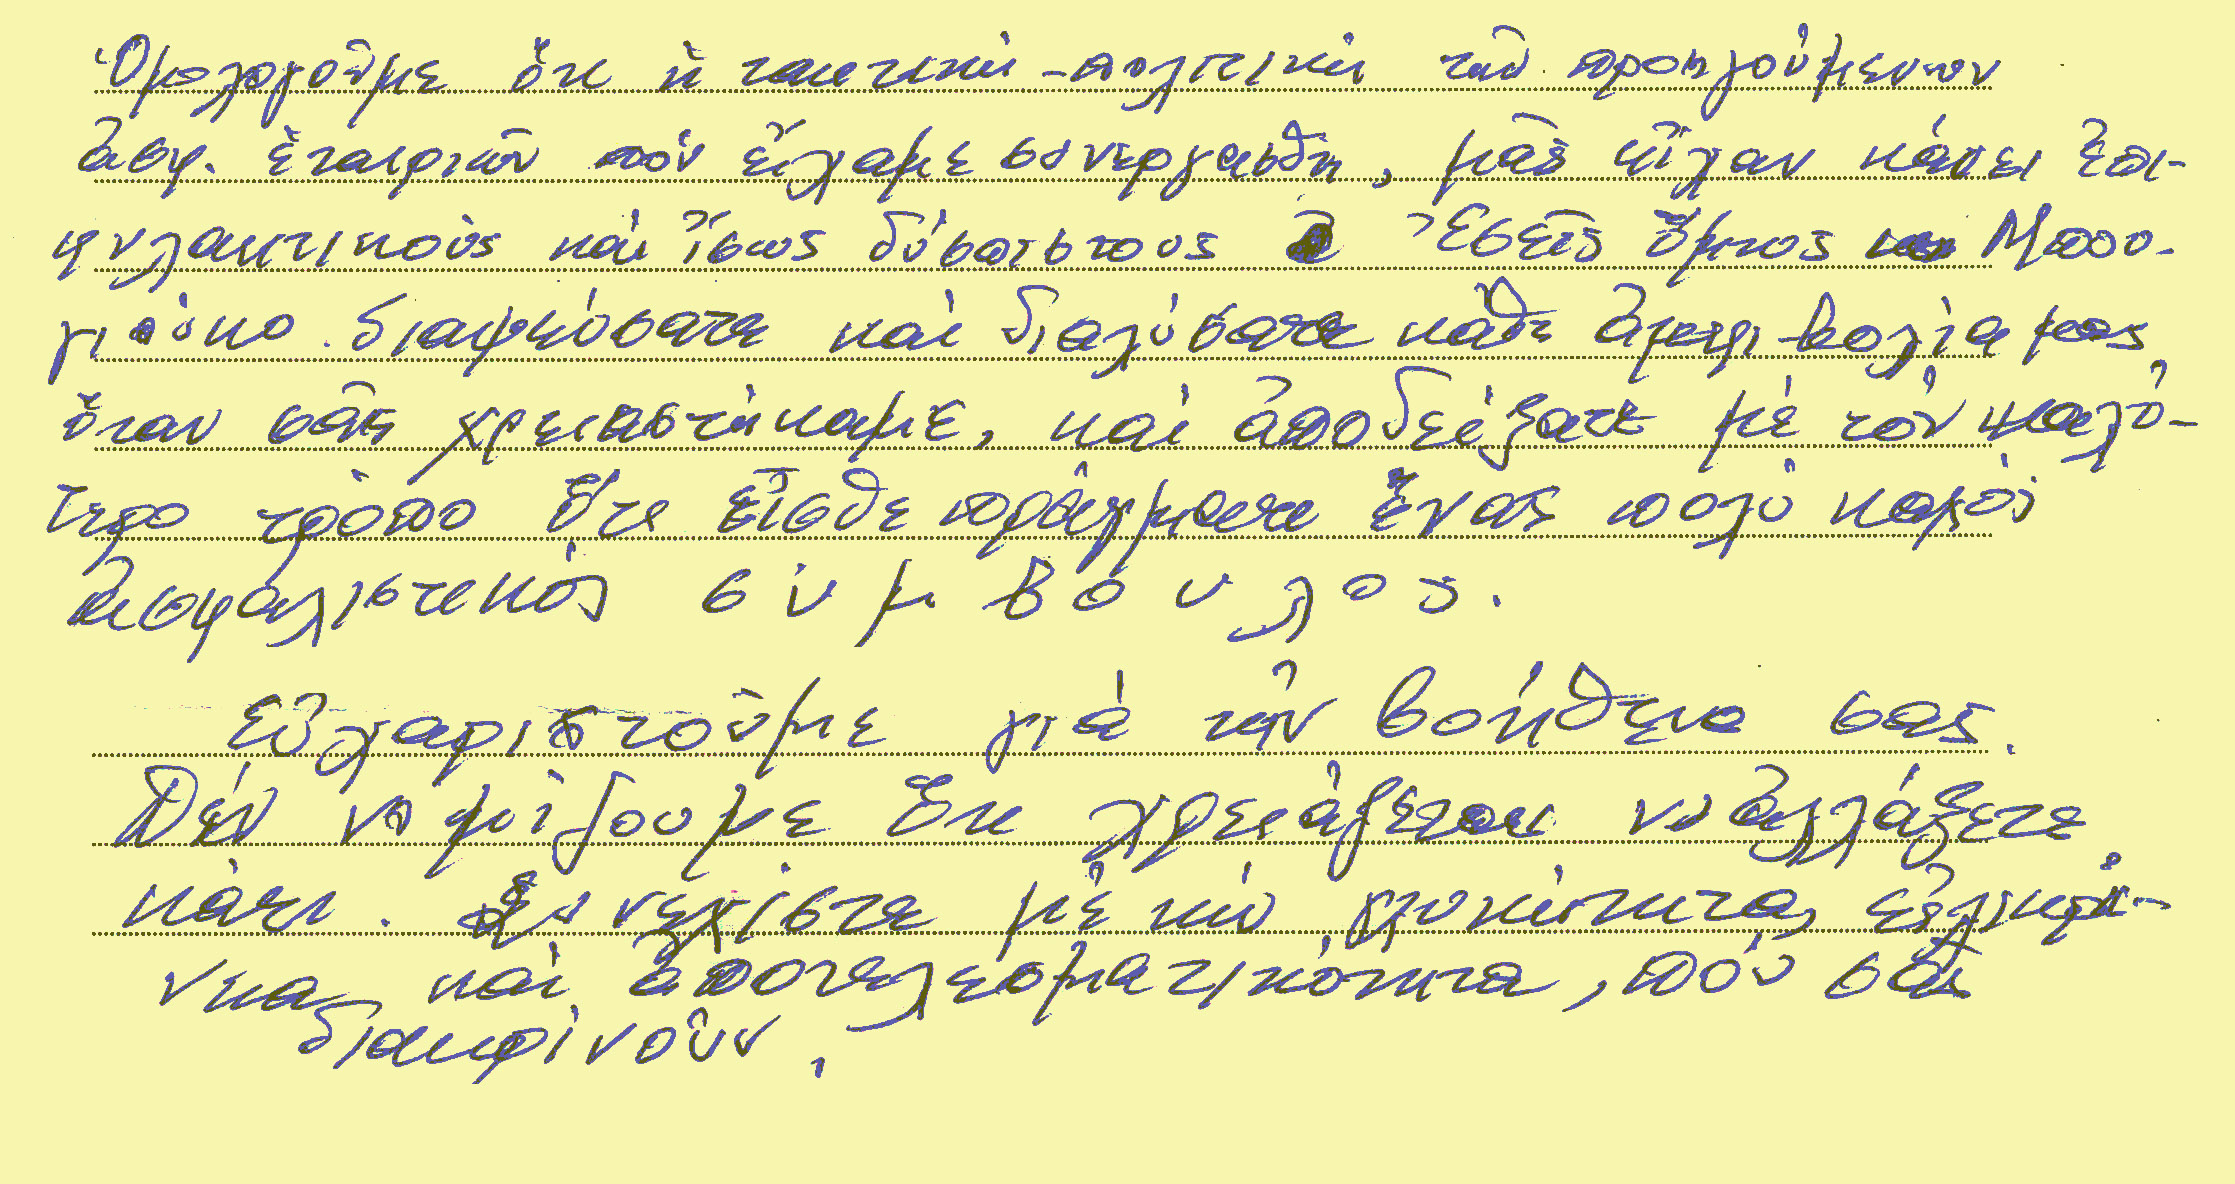 Ὁμολογοῦμε ὅτι ἡ τακτική -πολιτική τῶν προηγούμενων
ἀσφ. ἑταιριῶν πού εἴχαμε συνεργασθῆ, μᾶς εἶχαν κάνει ἐπι-
φυλακτικούς καί ἴσως δύσπιστους Ἐσεῖς ὅμως κο Μπου-
γιοῦκο διαψεύσατε καί διαλύσατε κάθε ἀμφιβολία μας
ὅταν σᾶς χρειαστήκαμε, καί ἀποδείξατε μέ τόν καλύ-
τερο τρόπο ὅτι εἶσθε πράγματι ἕνας πολύ καλός
ἀσφαλιστικός σύμβουλος.
Εὐχαριστοῦμε γιά τήν βοήθεια σας.
Δέν νομίζουμε ὅτι χρειάζεται νά ἀλλάξετε
κάτι. Συνεχίστε μέ τήν εἰλικρί-
νεια καί ἀποτελεσματικότητα, πού σᾶς
διακρίνουν.